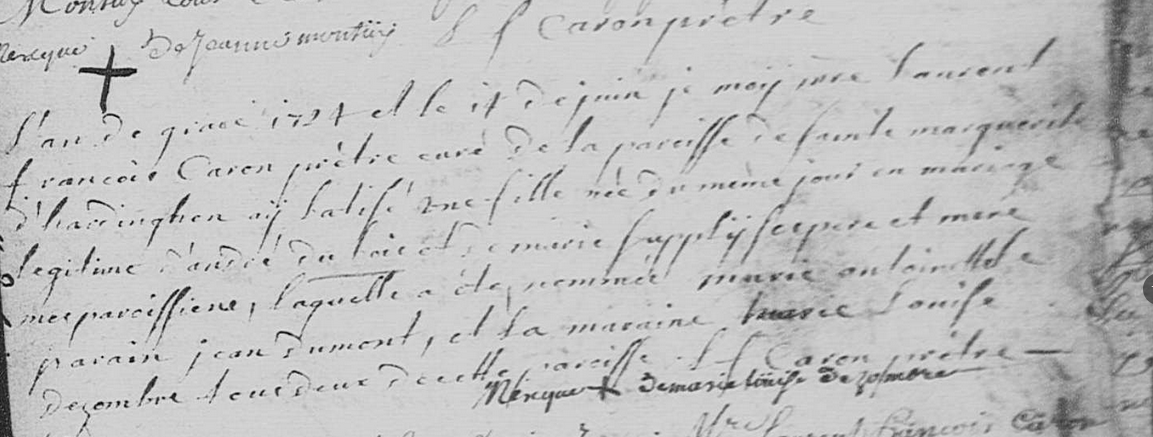 de jeanne montuÿ L f Caron prêtre
l'an de grace 1724 et le 17 de juin je moÿ mre laurent
francois Caron prêtre curé de la paroisse de sainte marguerite
d'hardinghen aÿ batisé une fille née du même jour en mariage
legitime d'andré du et de marie supplÿ ses pere et mere
mes paroissiens, laquelle a été nommée marie antoinette le
parain jean dumont, et la maraine marie Louise
dezombre tous deux de cette paroisse. L f Caron prêtre
Merque de marie louise dezombre
Mre Laurent francois Caron